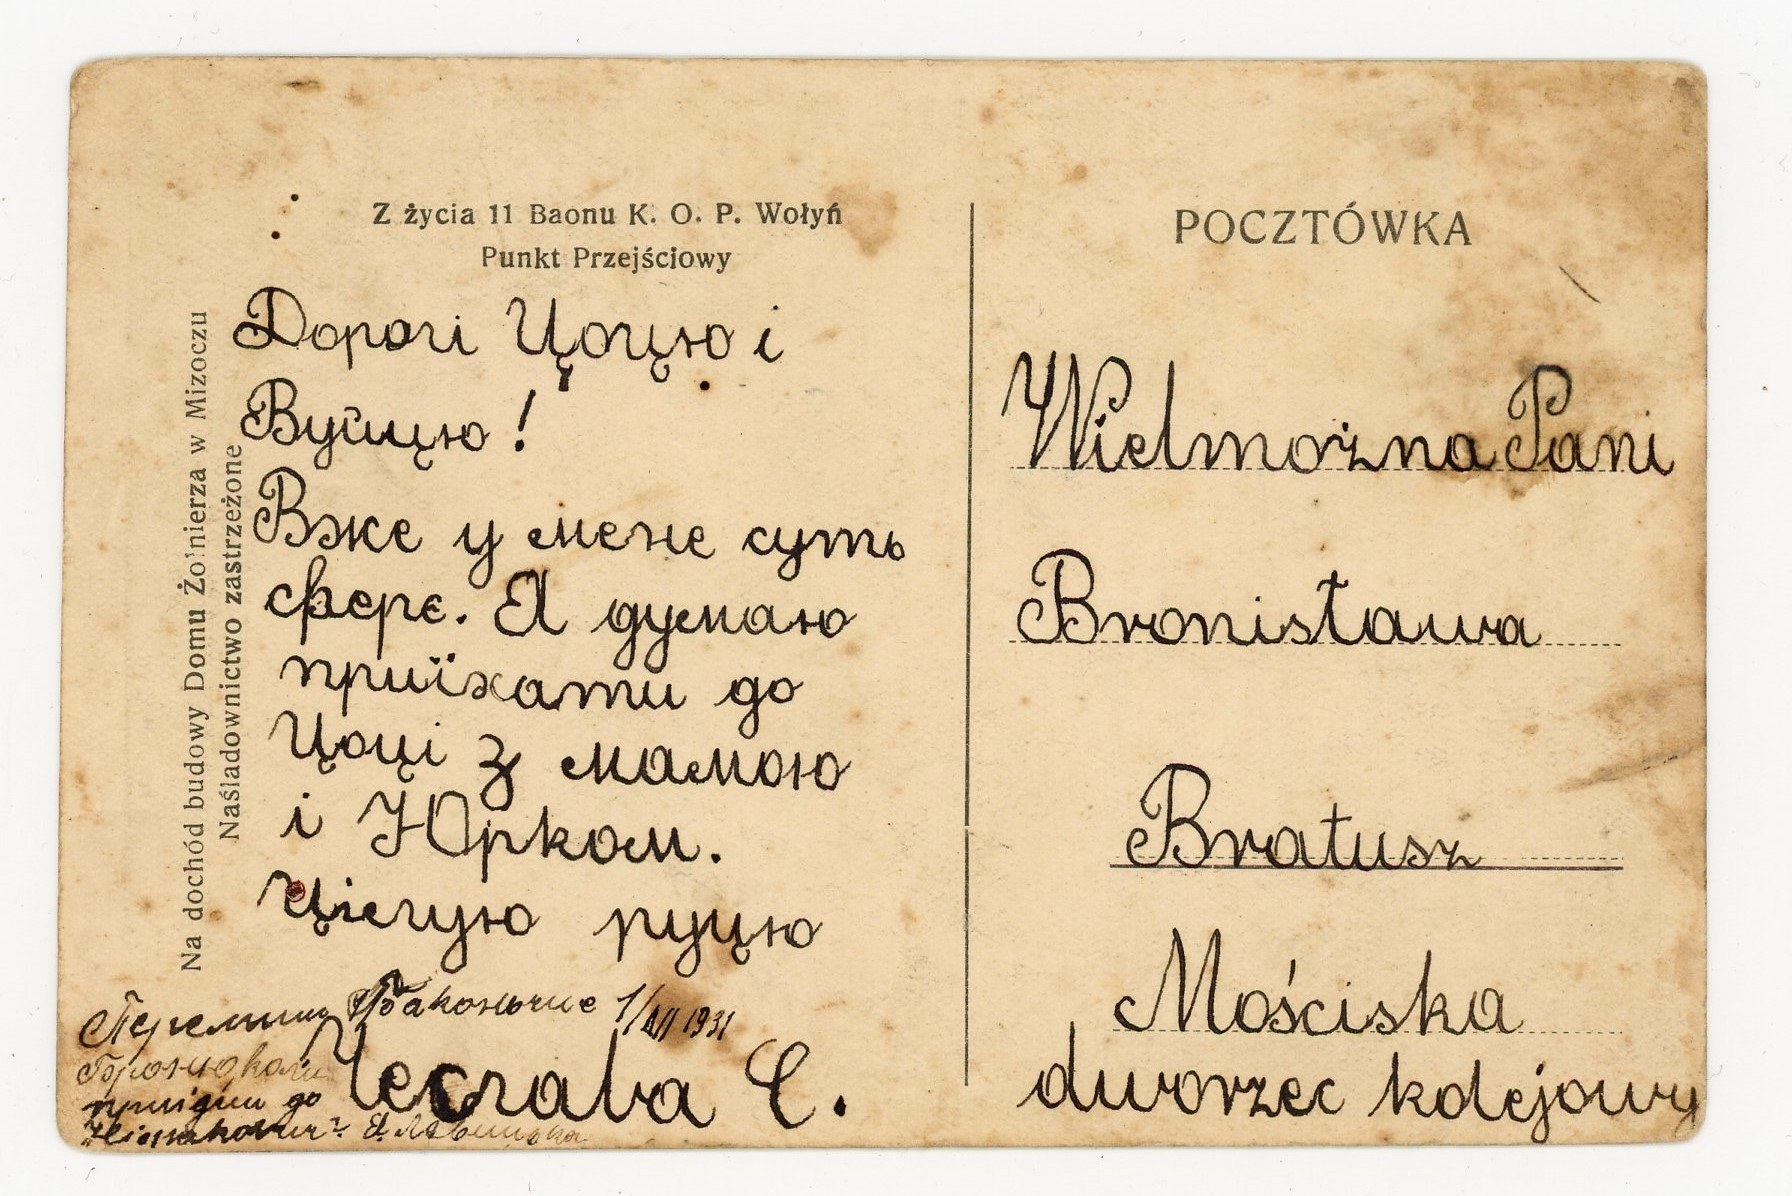 Z życia 11 Baonu K. O. P. Wołyń
Punkt Przejściowy
Na dochód budowy Domu Żołnierza w Mizoczu
Naśladownictwo zastrzeżone
Дорогі Цюцю і
Вуйцю!
Вже у мене суть
фєрє. Я думаю
приїхати до
Цюці з мамою
і Юрком.
Цієлую руцю
Перемишль Бакончице 1/VII 1931
приїдїш до
Чеслава С.
POCZTÓWKA
Wielmożna Pani
Bronisława
Bratusz
Mościska
dworzec kolejowy